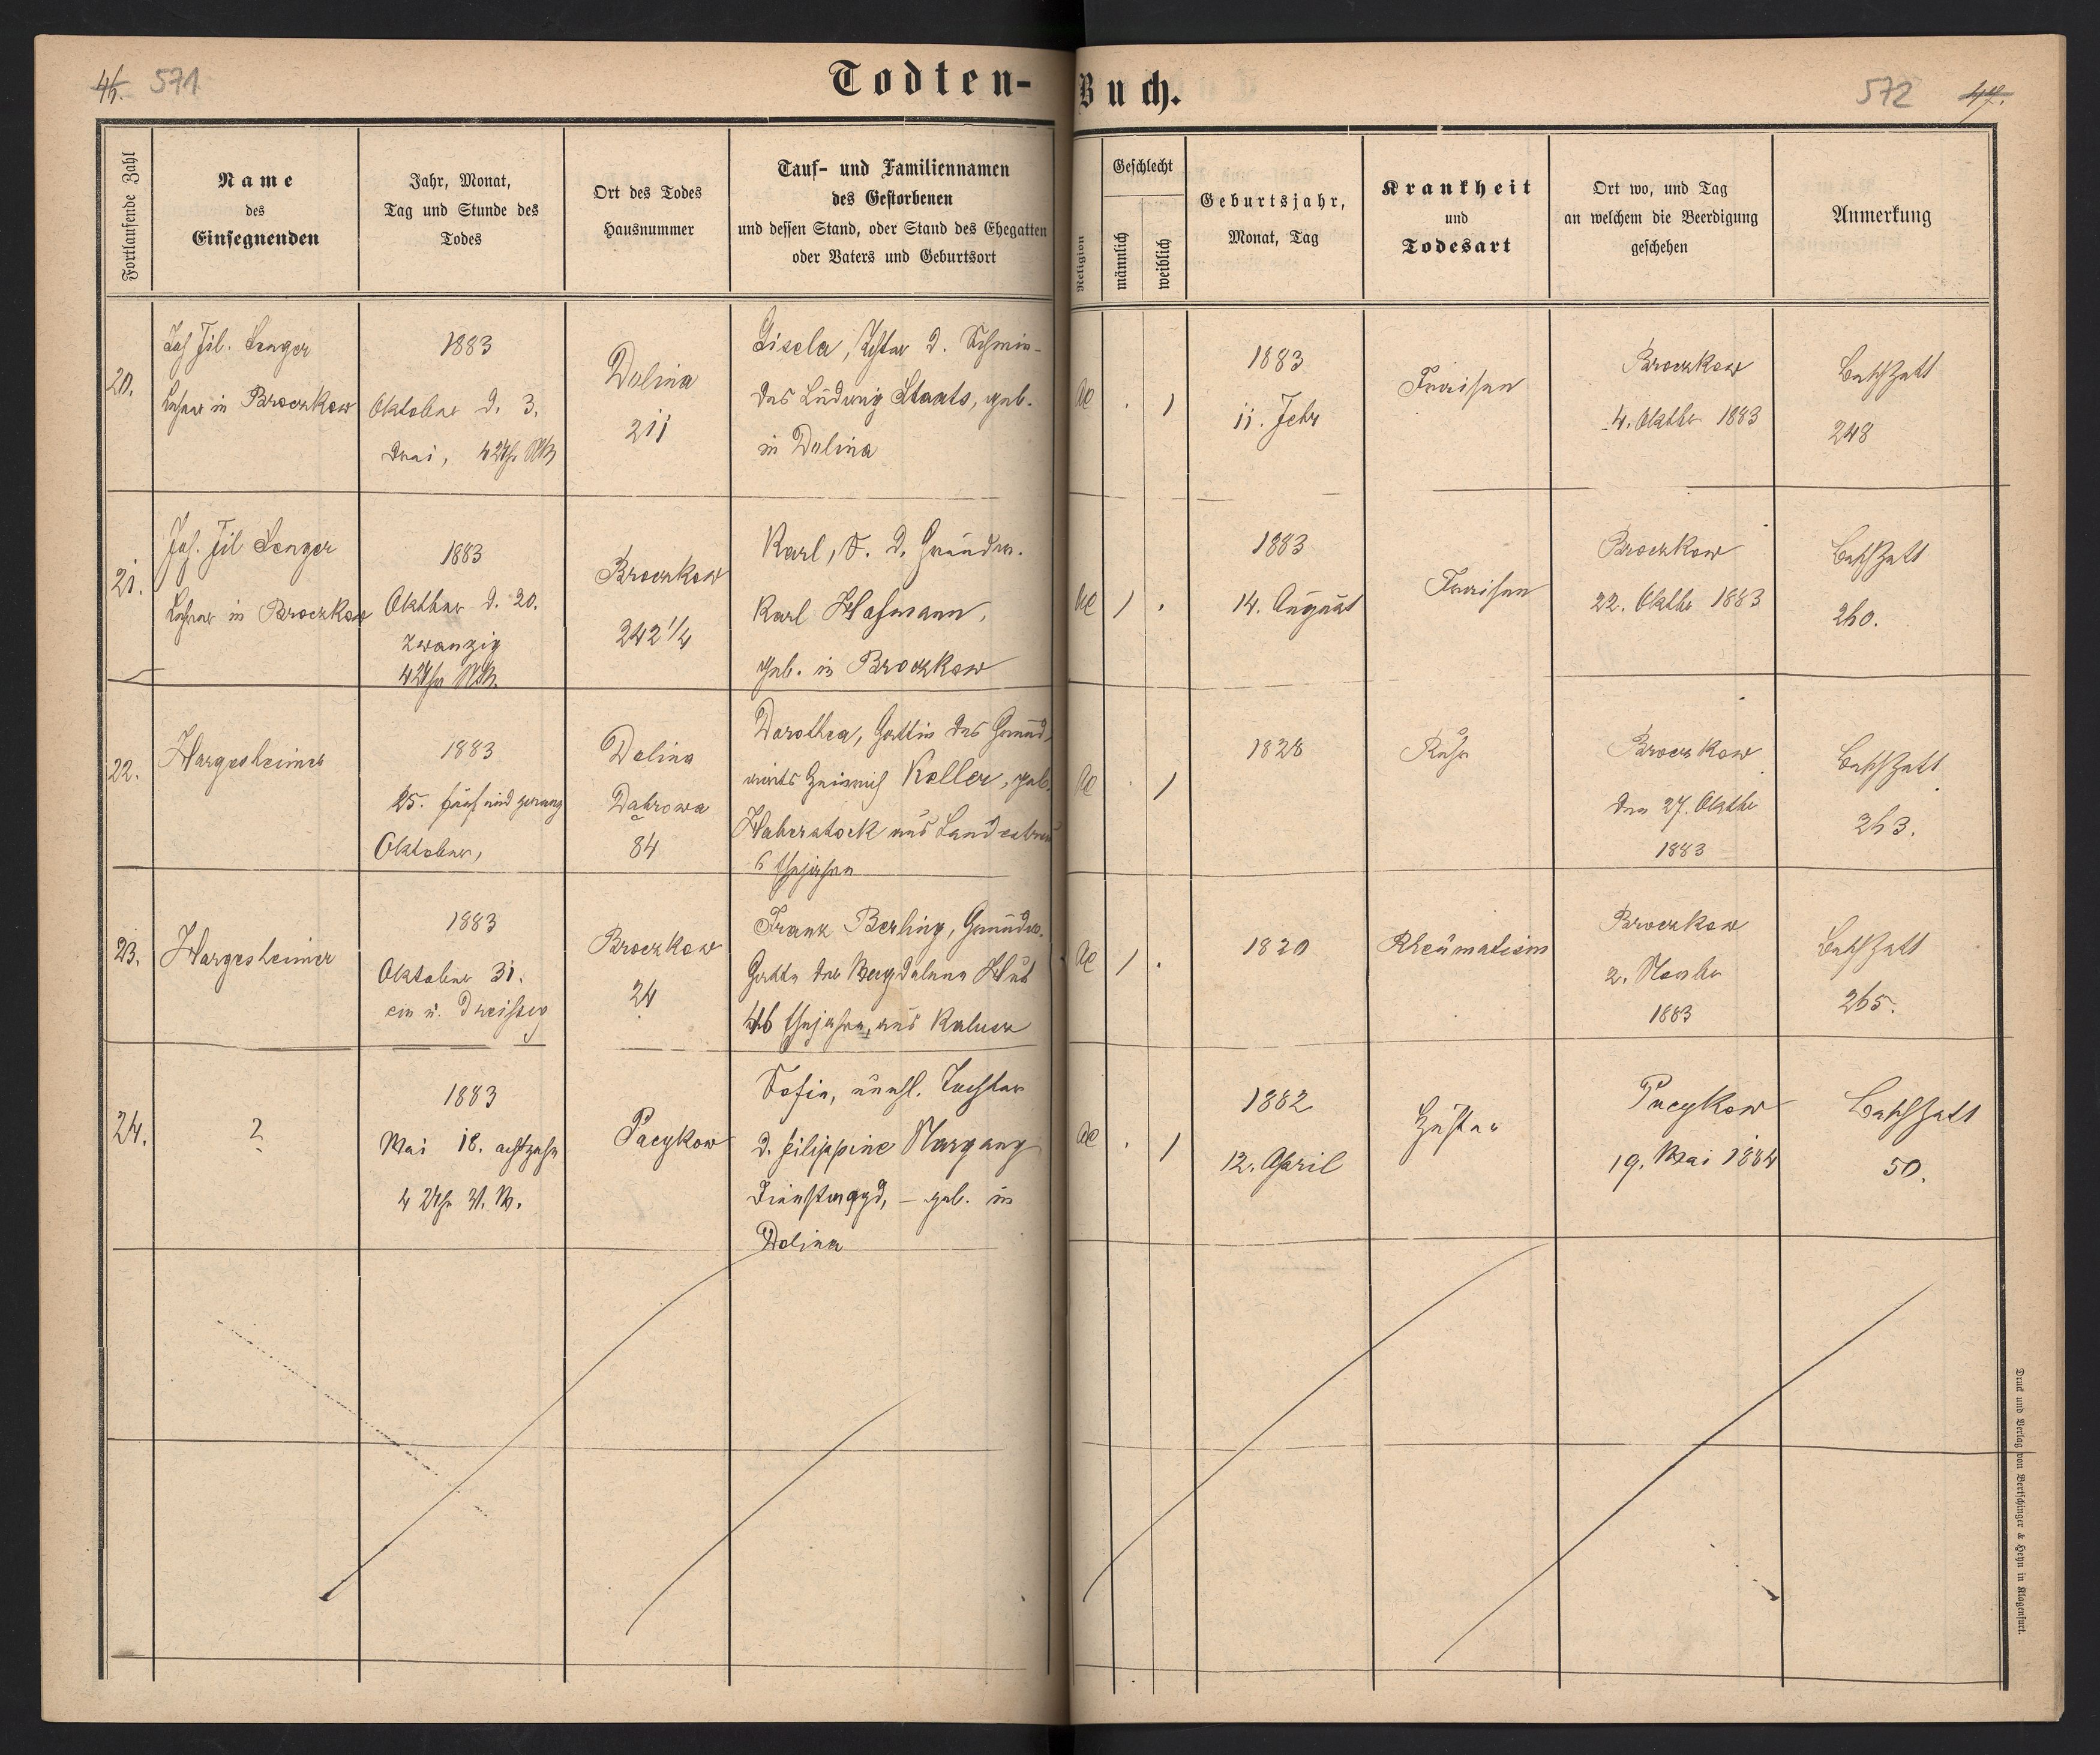 571
Todten-
Buch.
572
47.
Fortlaufende Zahl
Name
des
Einsegnenden
Jahr, Monat,
Tag und Stunde des
Todes
Ort des Todes
Hausnummer
Tauf- und Familiennamen
des Gestorbenen
und dessen Stand, oder Stand des Ehegatten
oder Vaters und Geburtsort
Religion
Geschlecht
männlich
weiblich
Geburtsjahr,
Monat, Tag
Krankheit
und
Todesart
Ort wo, und Tag
an welchem die Beerdigung
geschehen
Anmerkung
20.
Fil. Lenger
Lehrer in Broczkow
1883
Oktober d. 3.
drei, 4 Uhr
Dolina
211
Gisela, d.
des Ludwig Staats, geb.
in Dolina
1883
11. Febr
Fraisen
Broczkow
4. Oktbr 1883
248
21.
Joh. Fil Lenger
Lehrer in Broczkow
1883
Oktber d. 20.
zwanzig
4 Uhr
Broczkow
242 1/4
Karl, S. d. Grundw.
Karl Hofmann,
geb. in Broczkow
1883
14. August
Fraisen
Broczkow
22. Oktbr 1883
260.
22.
Hargesheimer
1883
25. fünf und zwanzig
Oktober,
Dolina
Dąbrowa
84
Dorothea, Gattin des Grund
wirts Heinrich Keller, geb.
Haberstock aus Landestreu
6 Ehejahre
1828
Ruhr
Broczkow
den 27. Oktbr
1883
263.
23.
Hargesheimer
1883
Oktober 31.
ein u. dreissig
Broczkow
24
Franz Berling, Grundw.
Gatte der Magdalena Hut
46 Ehejahre, aus Kalusz
1820
Rheumatism
Broczkow
2. Novbr
1883
265.
24.
?
1883
Mai 18. achtzehn
4 Uhr N. M.
Pacykow
Sofie, unehl. Tochter
d. Filippine Margang
Dienstmagd, – geb. in
Dolina
1882
12. April
Husten
Pacykow
19. Mai 1884
50.
Druck und Verlag von Bertschinger & Heyn in Klagenfurt.